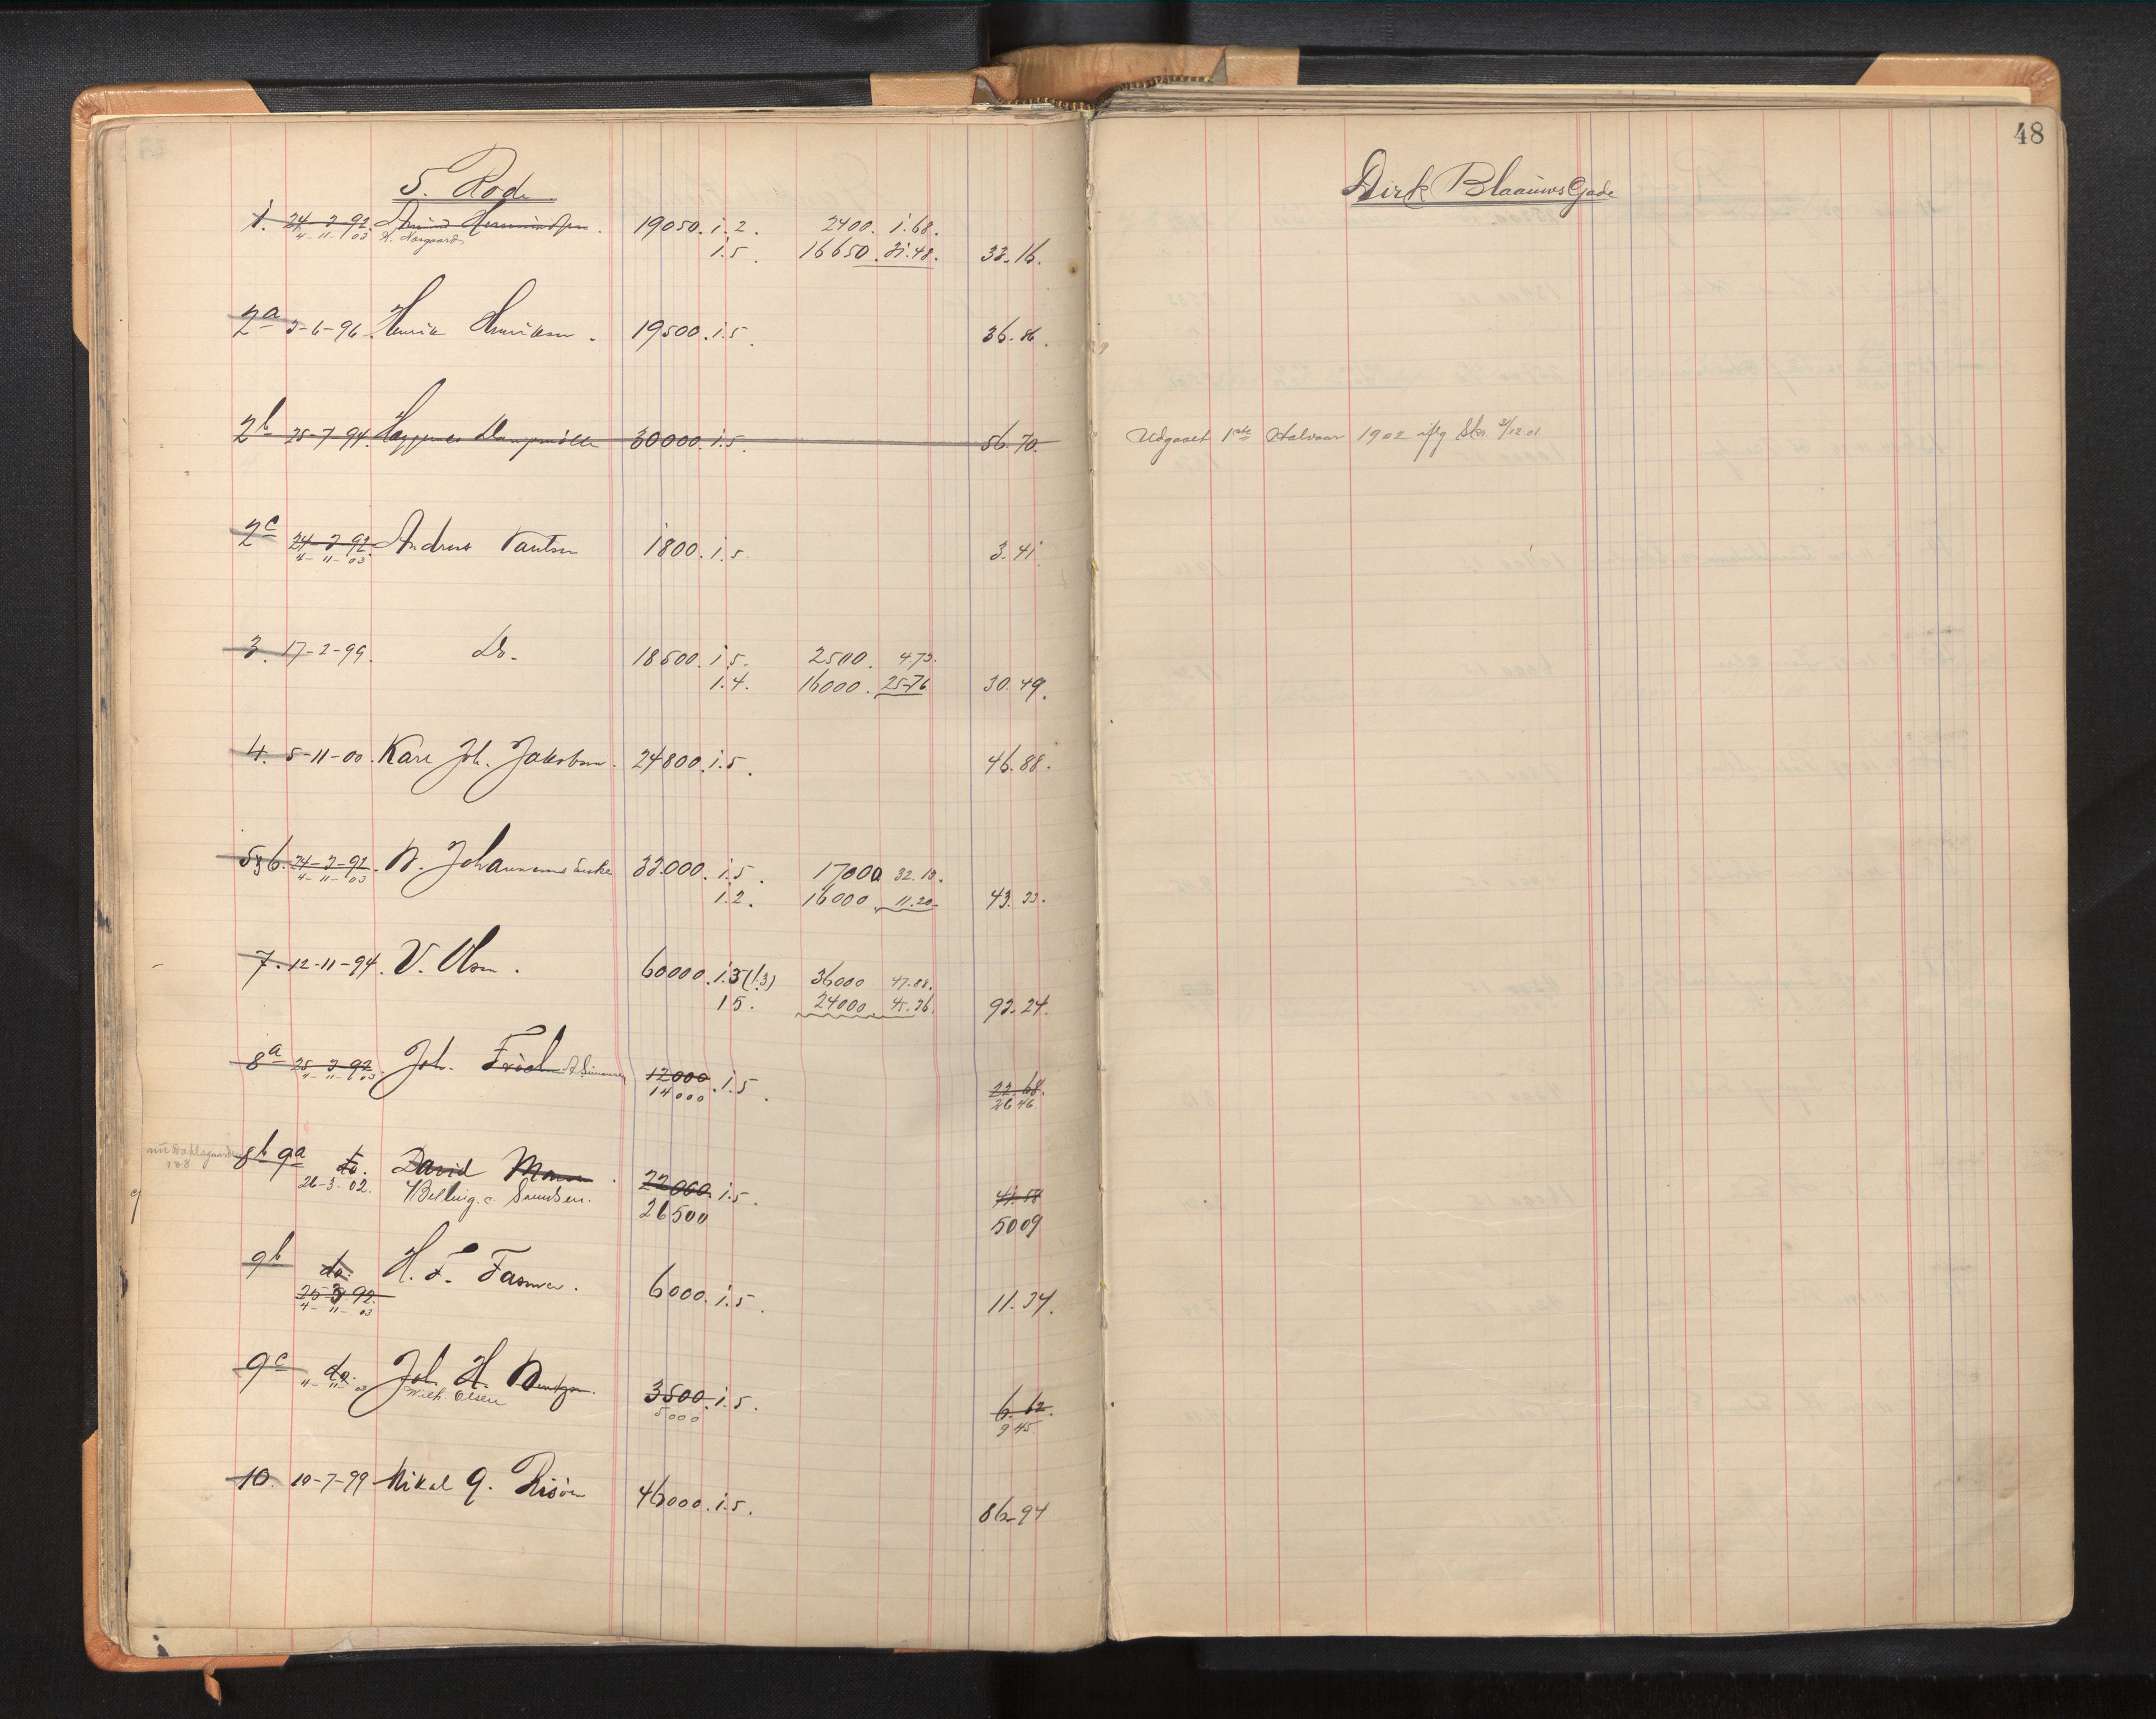 48
5. Rode
Dirk Blaauws Gade
1. 24-3-92. 19050. i. 2. 2400. 1.68.
4-11-03 N. Norgaard
i.5. 16650. 31.48. 33.16.
2a 3-6-96. Henrik Henriksen. 19500. i.5. 36.86.
2b 25-7-94. Haggernes Dampmölle 30000. i.5. 56.70. Udgaaet 1ste Halvaar 1902 iflg Skr 2/12 01
2c 24-3-92. Andreas 1800. i.5. 3.41.
4-11-03
3. 17-2-99. Do. 18500. i.5. 2500. 4.73.
1.4. 16000. 25.76 30.49.
4. 5-11-00. Karl Joh. Jakobsen. 24800. i.5. 46.88.
5 & 6. 24-3-92. N. Johannessens Enke 33000. i.5. 17000 32.13.
4-11-03
1.2. 16000. 11.20. 43.33.
7. 12-11-94. V. Olsen. 60000. i.3 (1.3) 36000 47.88.
15. 24000. 45.36. 93.24.
8a 25-3-92. Joh. 12000. i.5. 22.68.
4-11-03 14000 26.46
8b 9a do. David 22000. i.5. 41.58
108
26-3-02. 26500 5009
9b do. H. F. Fasmer. 6000. i.5. 11.34.
25 3 92.
4-11-03
9c do. Joh. H. 3500. i.5. 6.62.
4-11-03 Wilh. Olsen 5000 9 45
10. 10-7-99 Mikal 46000. i.5. 86.94